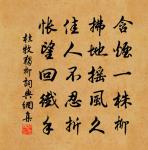 含煙一株柳
拂地搖風久
佳人不忍折
悵望回纖手
杜牧獨柳詞典網集